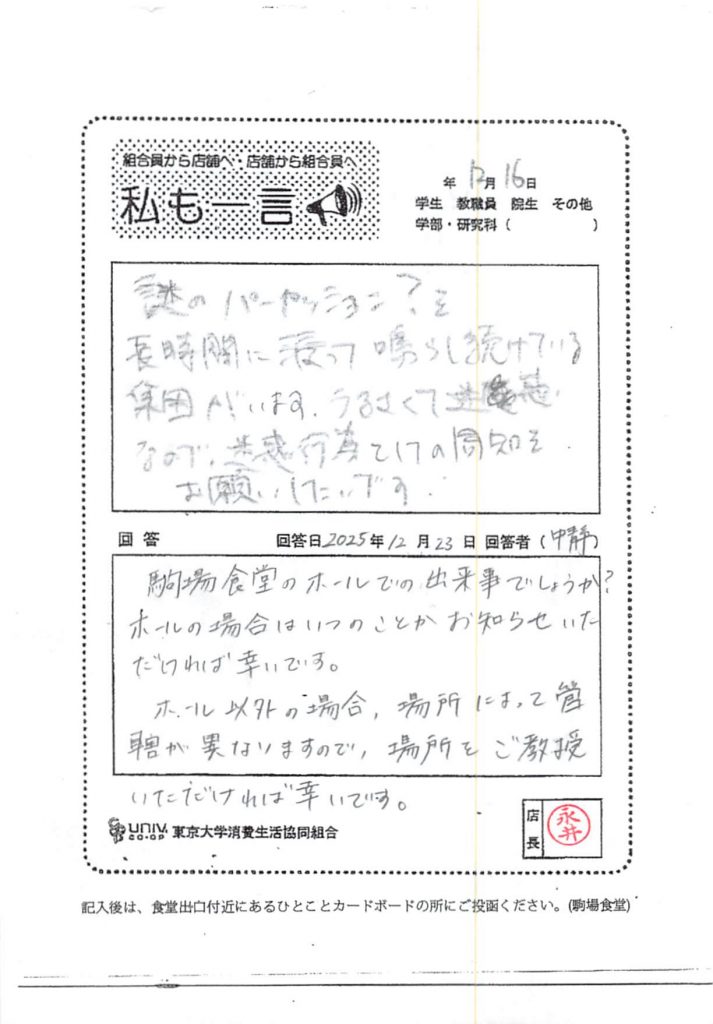 組合員から店舗へ・店舗から組合員へ
私も一言
年 12月 16日
学生 教職員 院生 その他
学部・研究科( )
謎のパーカッション?を
長時間に渡って鳴らし続けている
集団がいます。うるさくて迷惑
なので、迷惑行為としての周知を
お願いしたいです。
回答 回答日2025年12月23日 回答者(中静)
駒場食堂のホールでの出来事でしょうか?
ホールの場合はいつのことかお知らせいた
だければ幸いです。
ホール以外の場合、場所によって管
轄が異なりますので、場所をご教授
いただければ幸いです。
UNIV. CO-OP 東京大学消費生活協同組合
店長 永井
記入後は、食堂出口付近にあるひとことカードボードの所にご投函ください。(駒場食堂)